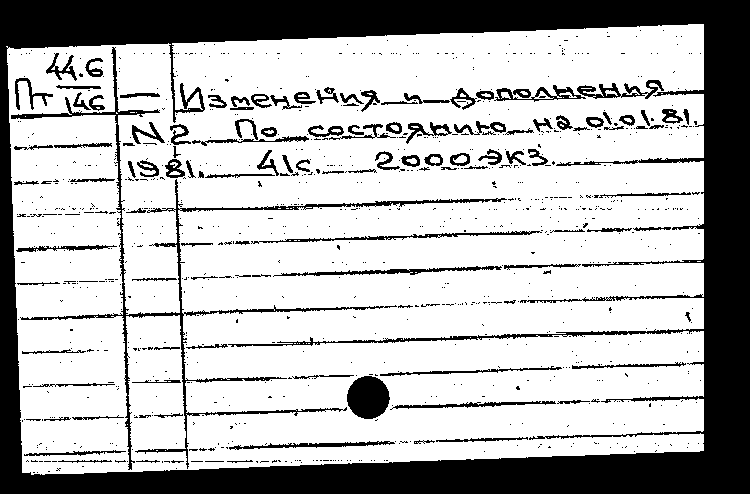 44.6
Пт 146 — Изменения и дополнения
N2. По состоянию на 01.01.81.
1981. 41с. 2000 экз.